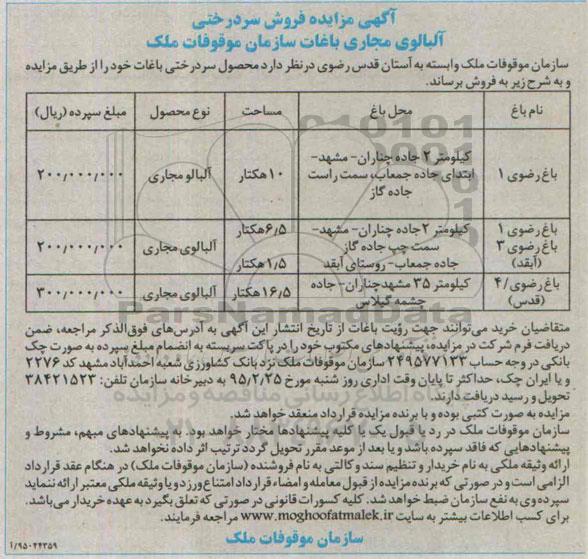 آگهی مزایده فروش سردرختی
آلبالوی مجاری باغات سازمان موقوفات ملک
سازمان موقوفات ملک وابسته به آستان قدس رضوی درنظر دارد محصول سردرختی باغات خود را از طریق مزایده
و به شرح زیر به فروش برساند.
نام باغ محل باغ مساحت نوع محصول مبلغ سپرده (ریال)
باغ رضوی ۱ کیلومتر ۲ جاده چناران- مشهد- ابتدای جاده جمعاب، سمت راست جاده گاز ۱۰هکتار آلبالو مجاری ۲۰۰٫۰۰۰٫۰۰۰
باغ رضوی ۱ کیلومتر ۲جاده چناران- مشهد- سمت چپ جاده گاز ۶٫۵هکتار آلبالوی مجاری ۲۰۰٫۰۰۰٫۰۰۰
باغ رضوی ۳ (آبقد) جاده جمعاب- روستای آبقد ۱٫۵هکتار
باغ رضوی/۴ (قدس) کیلومتر ۳۵ مشهدچناران- جاده چشمه گیلاس ۱۶٫۵هکتار آلبالوی مجاری ۳۰۰٫۰۰۰٫۰۰۰
متقاضیان خرید می‌توانند جهت رؤیت باغات از تاریخ انتشار این آگهی به آدرس‌های فوق‌الذکر مراجعه، ضمن
دریافت فرم شرکت در مزایده، پیشنهادهای مکتوب خود را در پاکت سربسته به انضمام مبلغ سپرده به صورت چک
بانکی در وجه حساب ۲۴۹۵۷۷۱۳۳ سازمان موقوفات ملک نزد بانک کشاورزی شعبه احمدآباد مشهد کد ۲۲۷۶
و یا ایران چک، حداکثر تا پایان وقت اداری روز شنبه مورخ ۹۵/۲/۲۵ به دبیرخانه سازمان تلفن: ۳۸۴۲۱۵۲۳
تحویل و رسید دریافت دارند.
مزایده به صورت کتبی بوده و با برنده مزایده قرارداد منعقد خواهد شد.
سازمان موقوفات ملک در رد یا قبول یک یا کلیه پیشنهادها مختار خواهد بود. به پیشنهادهای مبهم، مشروط و
پیشنهادهایی که فاقد سپرده باشد و یا بعد از موعد مقرر تحویل گردد ترتیب اثر داده نخواهد شد.
ارائه وثیقه ملکی به نام خریدار و تنظیم سند وکالتی به نام فروشنده (سازمان موقوفات ملک) در هنگام عقد قرارداد
الزامی است و در صورتی که برنده مزایده از قبول معامله و امضاء قرارداد امتناع ورزد و یا وثیقه ملکی معتبر ارائه ننماید
سپرده وی به نفع سازمان ضبط خواهد شد. کلیه کسورات قانونی در صورتی که تعلق بگیرد به عهده خریدار می‌باشد.
برای کسب اطلاعات بیشتر به سایت www.moghoofatmalek.ir مراجعه فرمایند.
سازمان موقوفات ملک
۱/۹۵۰۴۴۳۵۹
ParsNamadData